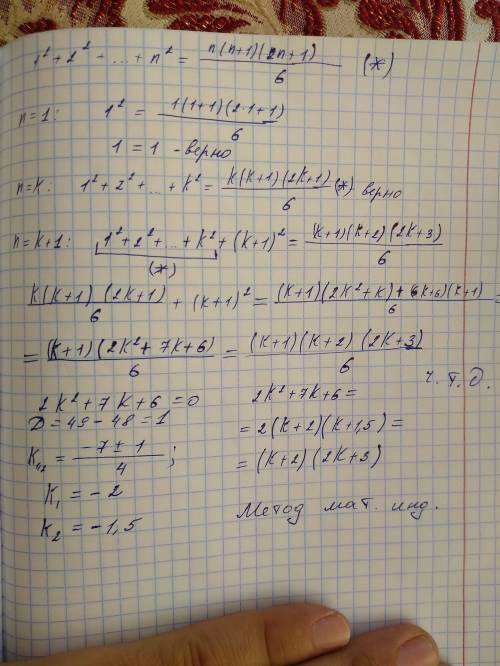 1² + 2² + ... + n² = n(n+1)(2n+1)/6 (*)
n=1: 1² = 1(1+1)(2·1+1)/6
1 = 1 - верно
n=k: 1² + 2² + ... + k² = k(k+1)(2k+1)/6 (*) верно
n=k+1: 1² + 2² + ... + k² + (k+1)² = (k+1)(k+2)(2k+3)/6
(*)
k(k+1)(2k+1)/6 + (k+1)² = (k+1)(2k²+k)+(6k+6)(k+1)/6 =
= (k+1)(2k²+7k+6)/6 = (k+1)(k+2)(2k+3)/6
ч.т.д.
2k²+7k+6=0
D=49-48=1
k₁,₂ = -7±1/4 ;
k₁ = -2
k₂ = -1,5
2k²+7k+6=
=2(k+2)(k+1,5)=
=(k+2)(2k+3)
Метод мат. инд.